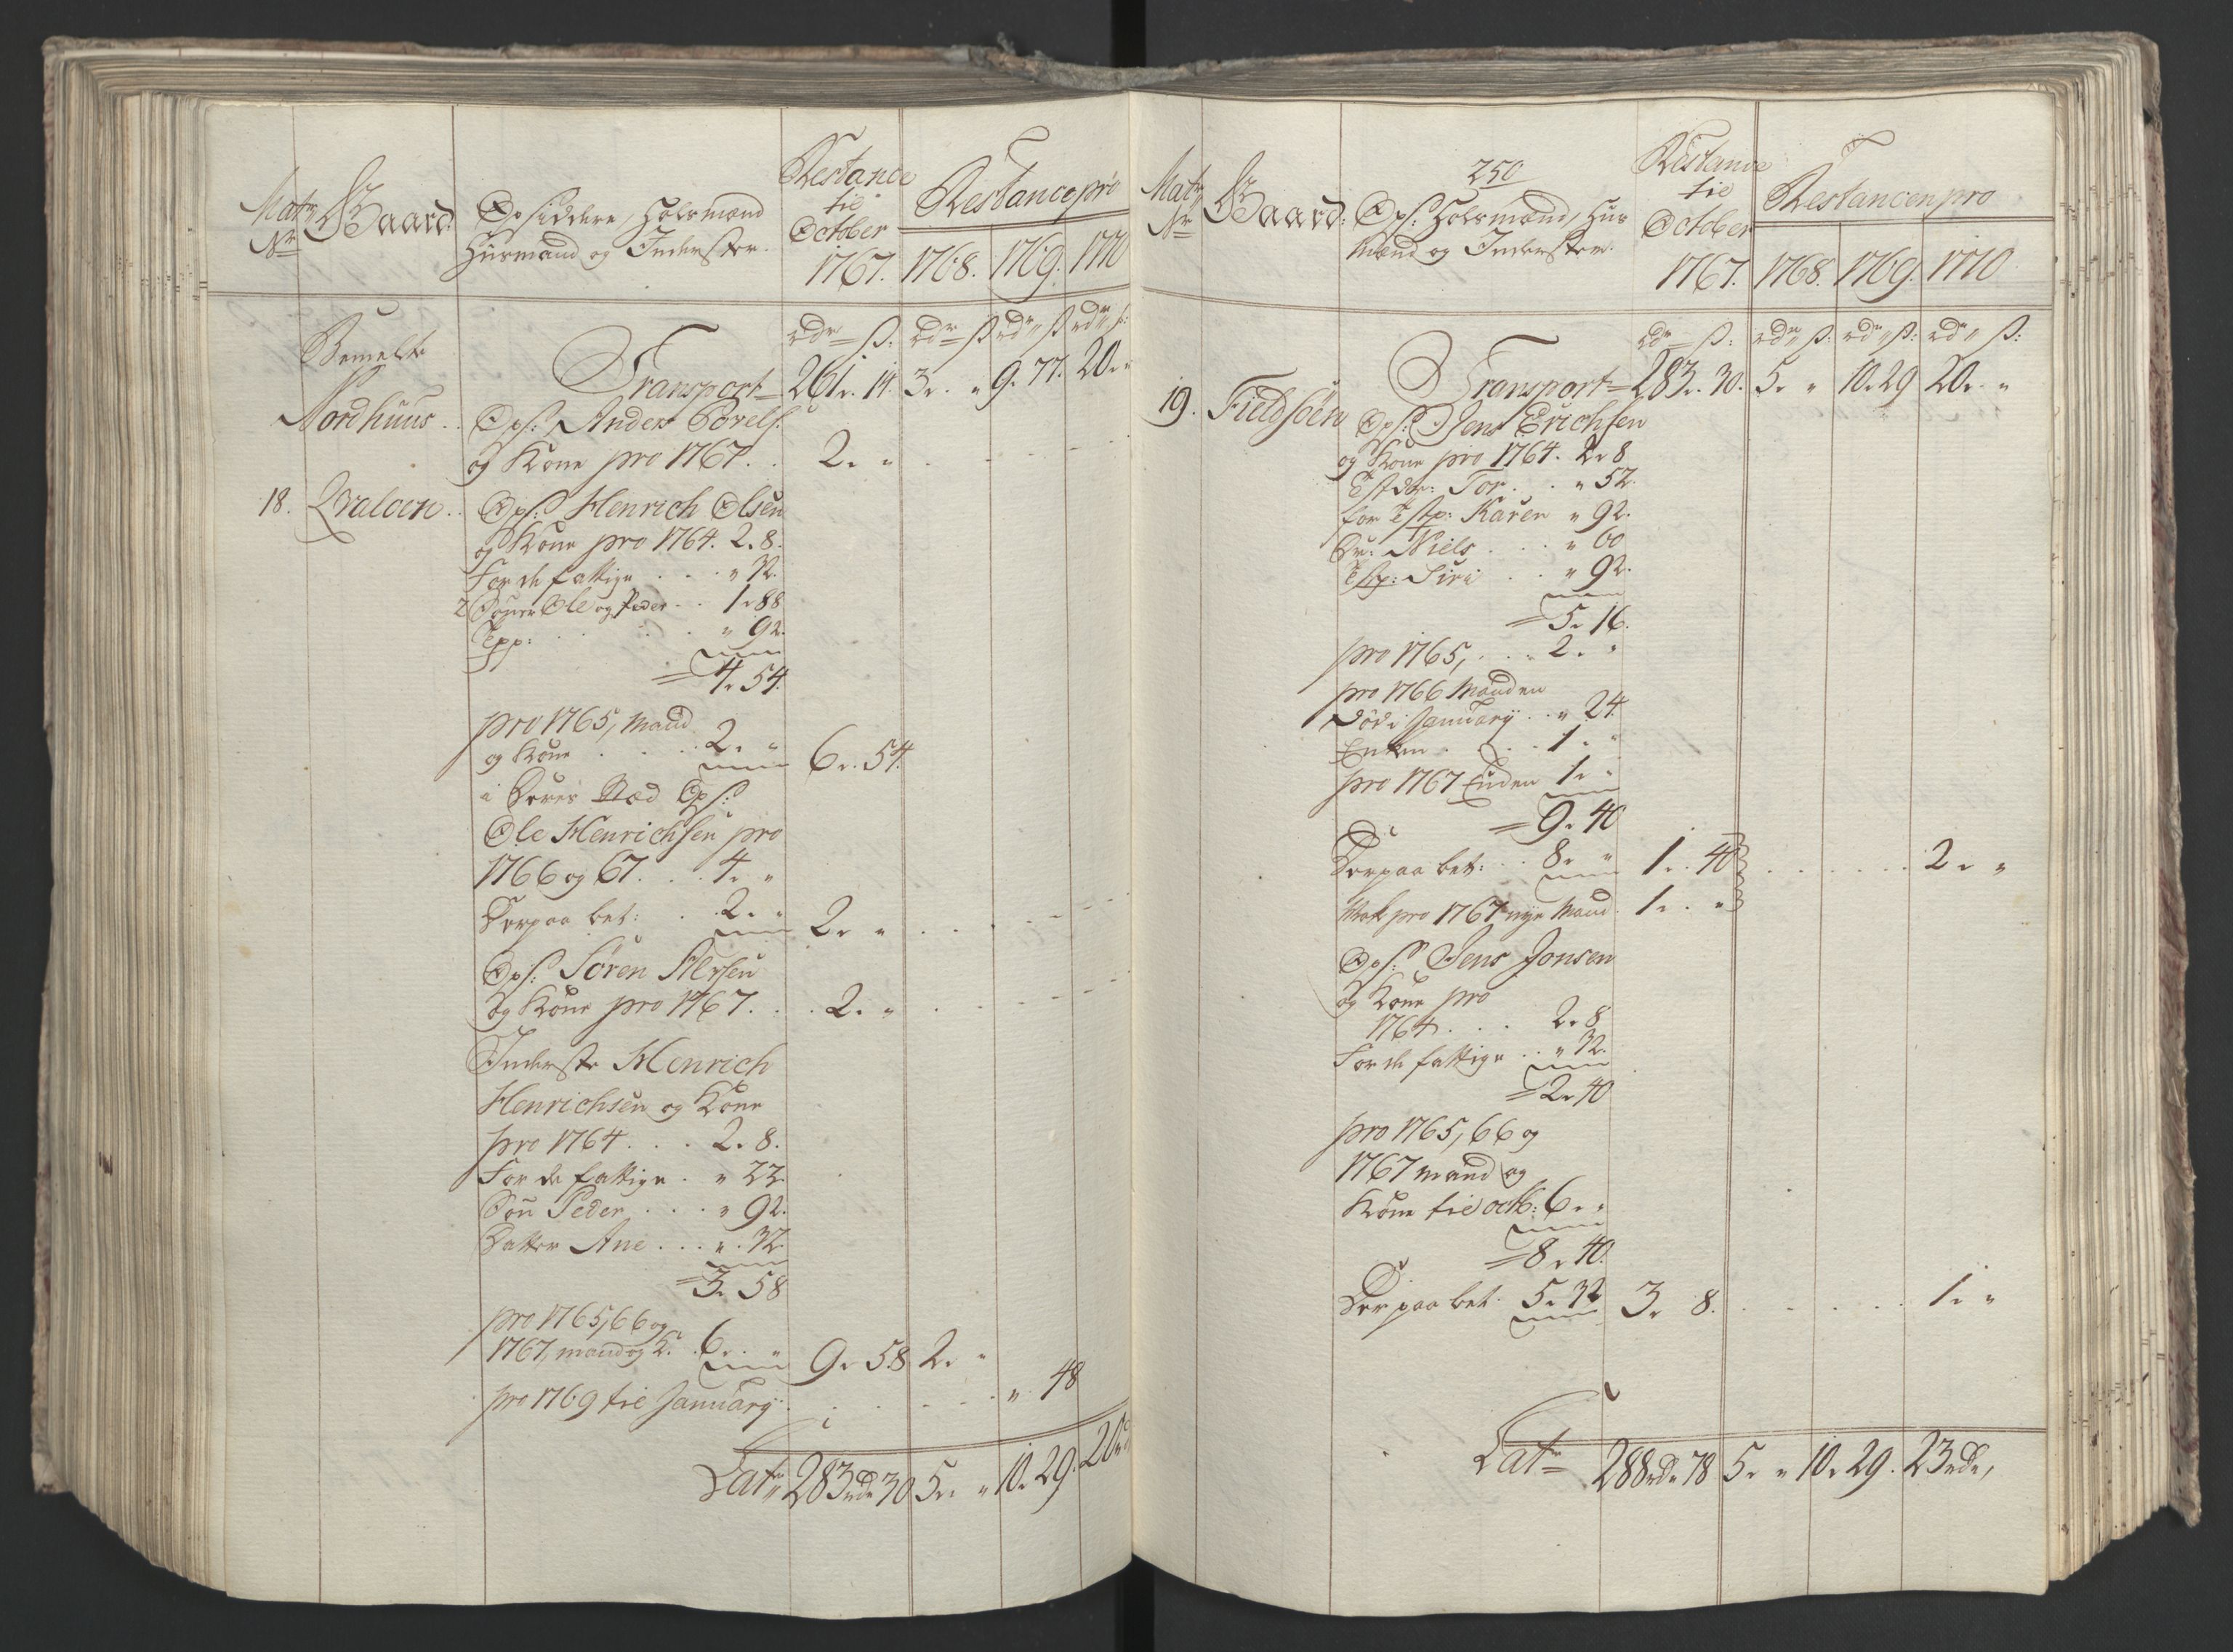 Matr Nr
Gaard.
Opsiddere, Holsmænd
Huusmænd og Inderster.
Restance
til
October
1767.
Restance pro
1768. 1769. 1770
rdr ß: rdr ß rdr ß rdr ß:
Bemelte
Nordhuus
Transport 261. 14. 3. " 9. 77. 20. "
Ops: Anders Povels:
og Kone pro 1767. . 2. "
18. Qvaloen. Ops: Henrich Olsen
og Kone pro 1764. 2. 8.
For de fattige . . . " 32.
2 Sønner Ole og Peder . . 1. 88
Tpp: . . . " 92.
4. 54.
pro 1765, Mand
og Kone . . . 2. " 6. 54.
i Deres Stæd Ops:
Ole Henrichsen pro
1766 og 67. . . 4. "
Derpaa bet: . . 2. " 2. "
Ops: Sören
og Kone pro 1767. . . 2. "
Inderste Henrich
Henrichsen og Kone
pro 1764. . . 2. 8.
For de fattige . " 22.
Søn Peder . . . " 92.
Datter Ane . . . " 32
3. 58
pro 1765, 66 og
1767, mand og K. 6. " 9. 58 2. "
pro 1769 til January . . . " 48
Latr 283 rdr 30 5. " 10. 29. 20.
250
Matr Nr
Gaard.
Ops: Holsmænd, Huus
mænd og Inderster.
Restance
til
October
1767.
Restancen pro
1768. 1769. 1770
rdr ß: rdr ß: rdr ß: rdr ß:
Transport 283. 30. 5. " 10. 29 20. "
19. Fieldsöen Ops: Jens Erichsen
og Kone pro 1764. 2. 8
Tstdr: Tor . . " 52.
for Tstp: Karen " 92.
Dr: Niels . . . " 60
Tstp: Siri . . " 92.
5. 16.
pro 1765, . . . 2. "
pro 1766 Manden
död i January . . " 24.
Enken . . . 1. "
pro 1767 Enken 1. "
9. 40
Derpaa bet: . . 8. " 1. 40 . . . 2. "
pro 1767 nye Mand. 1. "
Ops: Jens Jonsen
og Kone pro
1764 . . . 2. 8
For de fattige . . " 32.
2. 40
pro 1765, 66 og
1767 mand og
Kone til octb: 6. "
8. 40.
Derpaa bet: 5. 32 3. 8. . . . 1. "
Latr 288 rdr 78 5. " 10. 29. 23 rdr,